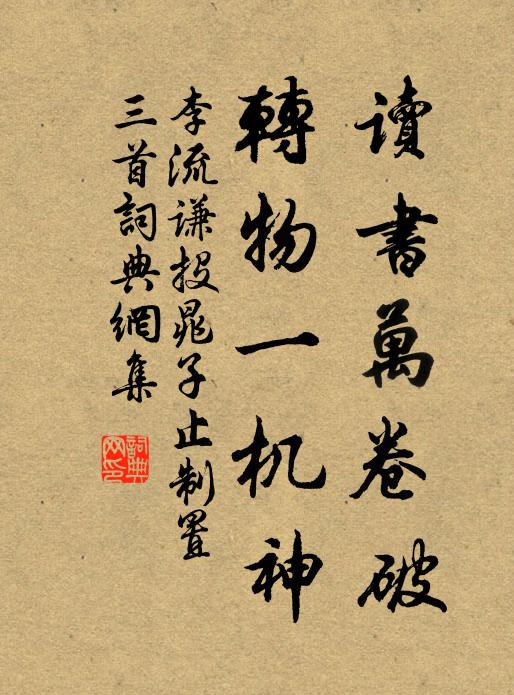 讀書萬卷破
轉物一机神
李流谦投晁子止制置
三首詞典網集
詞典
网印